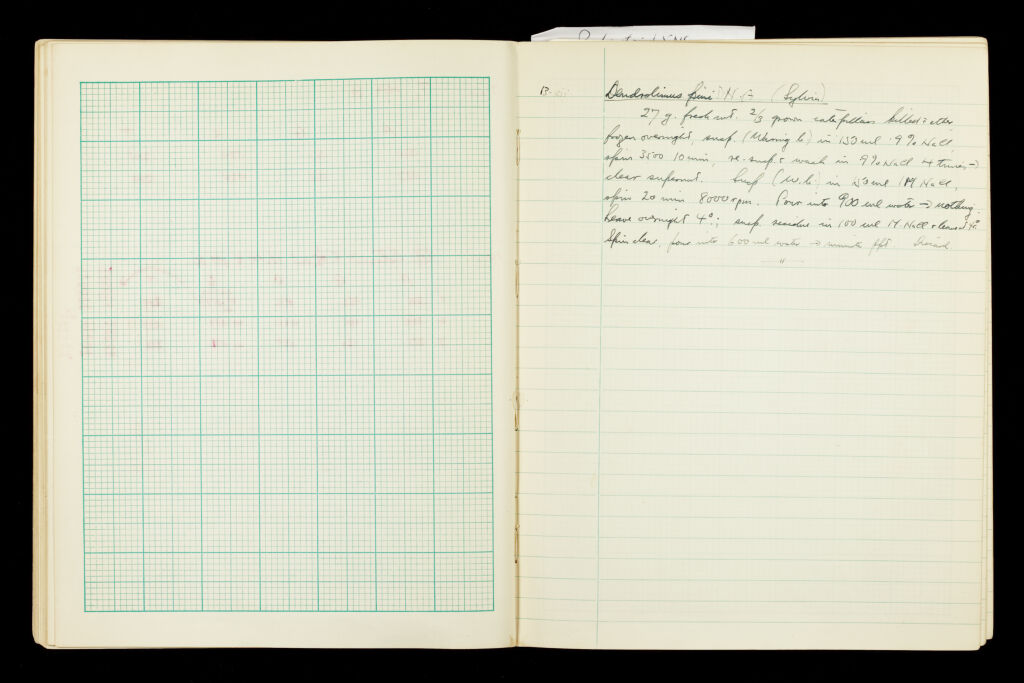 Dendrolimus pini N.A (Sylvia)
27 g. fresh wt. 2/3 grown caterpillars killed ether
frozen overnight, susp. (Waring b) in 150 ml .9% NaCl,
spin 3500 10 min, re-susp & wash in .9% NaCl 4 times →
clear supernat. Susp (W.b) in 150 ml 1M NaCl,
spin 20 min 8000 rpm. Pour into 900 ml water → nothing.
Leave overnight 4°; susp. residue in 100 ml 1M NaCl & leave 4°
Spin clear, pour into 600 ml water → minute ppt.
— " —